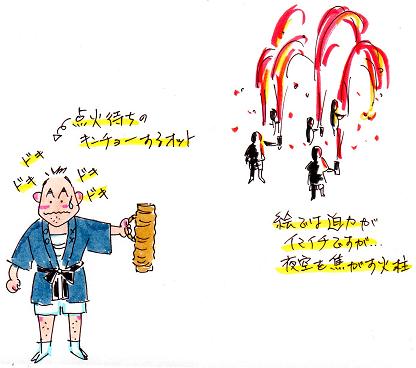 点火待ちの
キンチョーするオット
ドキ
ドキ
ドキ
ドキ
絵では迫力が
イマイチですが…
夜空を焦がす火柱